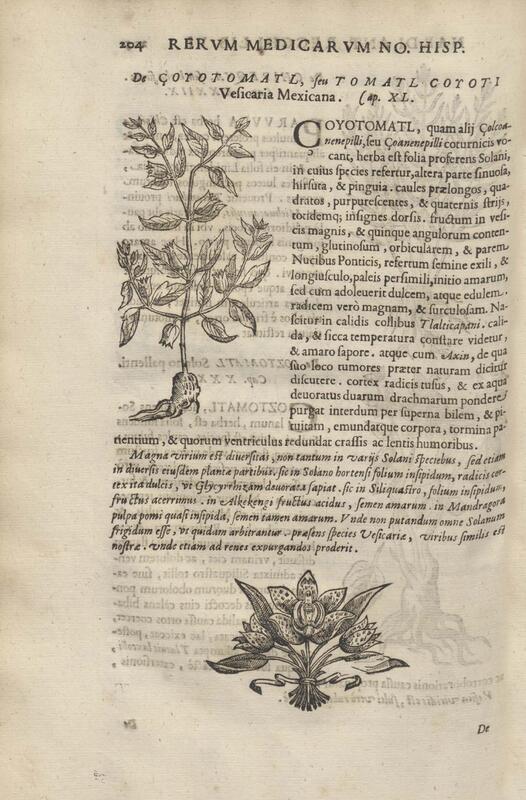 204 RERVM MEDICARVM NO. HISP.
De ÇOYOTOMATL, seu TOMATL COYOTI
Vesicaria Mexicana. Cap. XL.
COYOTOMATL, quam alij Çolcoa-
nenepilli, seu Çoanenepilli coturnicis vo-
cant, herba est folia proferens Solani,
in cuius species refertur, altera parte sinuosa,
hirsuta, & pinguia. caules prælongos, qua-
dratos, purpurescentes, & quaternis strijs,
totidemq; insignes dorsis. fructum in vesi-
cis magnis, & quinque angulorum conten-
tum, glutinosum, orbicularem, & parem
Nucibus Ponticis, refertum semine exili, &
longiusculo, paleis persimili, initio amarum,
sed cum adoleuerit dulcem, atque edulem.
radicem verò magnam, & surculosam. Na-
scitur in calidis collibus Tlalticapani. cali-
da, & sicca temperatura constare videtur,
& amaro sapore. atque cum Axin, de qua
suo loco tumores præter naturam dicitur
discutere. cortex radicis tusus, & ex aqua
deuoratus duarum drachmarum pondere
purgat interdum per superna bilem, & pi-
tuitam, emundatque corpora, tormina pa-
tientium, & quorum ventriculus redundat crassis ac lentis humoribus.
Magna virium est diversitas, non tantum in varijs Solani speciebus, sed etiam
in diversis eiusdem plantæ partibus. sic in Solano hortensi folium insipidum, radicis cor-
tex ita dulcis, vt Glycyrrhizam deuorata sapiat. sic in Siliquastro, folium insipidum,
fructus acerrimus. in Alkekengi fructus acidus, semen amarum. in Mandragora
pulpa pomi quasi insipida, semen tamen amarum. Vnde non putandum omne Solanum
frigidum esse, vt quidam arbitrantur. præsens species Vesicariæ, viribus similis est
nostræ. vnde etiam ad renes expurgandos proderit.
De